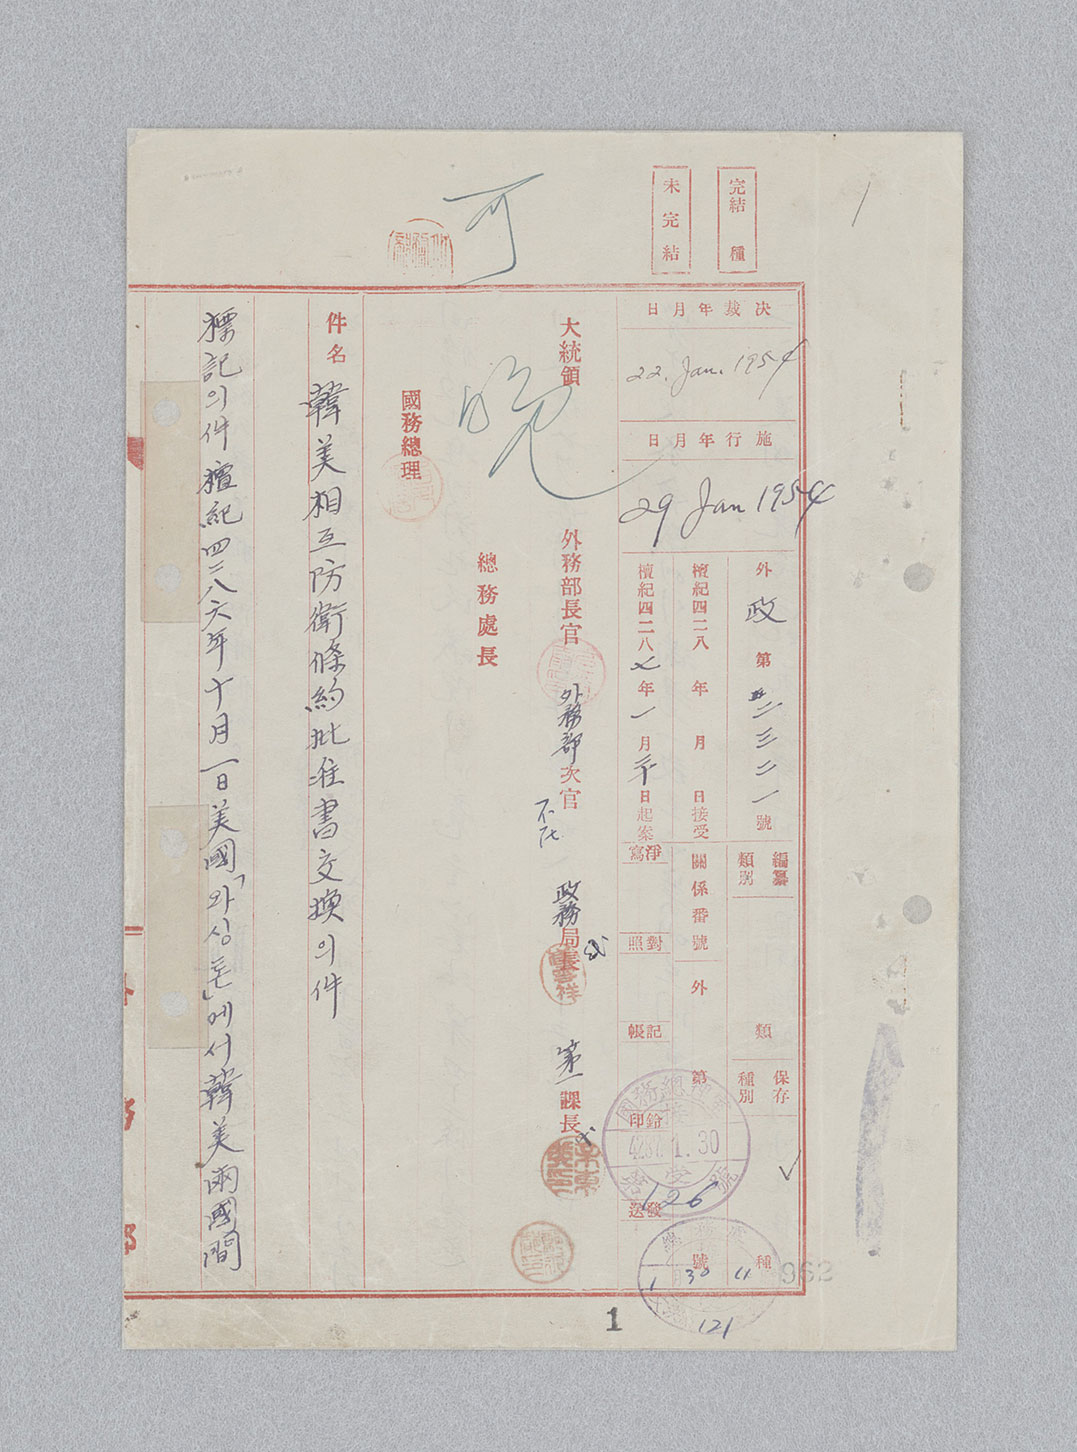 完結 種
未完結
可
決裁年月日
22. Jan. 1954
施行年月日
29 Jan 1954
外政第 三三二一號
檀紀四二八 年 月 日接受
檀紀四二八七年一月 日起案
編纂類別
類
保存種別
種
關係番號
外
第
號
淨寫
對照
記帳
鈐印
發送
4287. 1. 30
126
1 30
121
962
大統領
晩
外務部長官
外務部次官
不在
政務局長
第一課長
總務處長
國務總理
件名 韓美相互防衛條約批准書交換의件
標記의件檀紀四二八六年十月一日美國「와싱톤」에서韓美兩國間
1